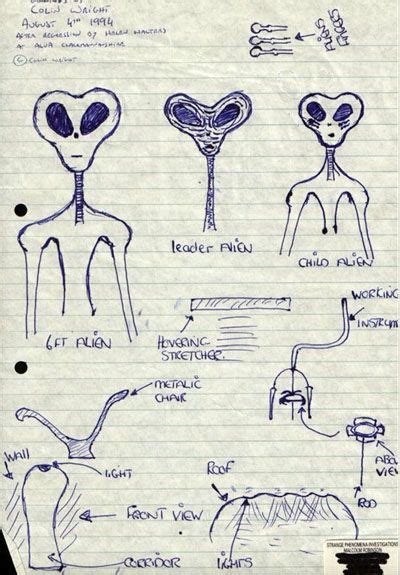 COLIN WRIGHT
AUGUST 4TH 1994
AFTER REGRESSION BY HELEN WALTERS
AT ALVA CLACKMANNANSHIRE
© COLIN WRIGHT
ALIENS
6FT ALIEN
leader ALIEN
CHILD ALIEN
HOVERING
STRETCHER.
WORKING
INSTRUM
METALIC
CHAIR
WALL
LIGHT
FRONT VIEW
CORRIDOR
ROOF
LIGHTS
ABO
VIEW
ROD
STRANGE PHENOMENA INVESTIGATIONS
MALCOLM ROBINSON